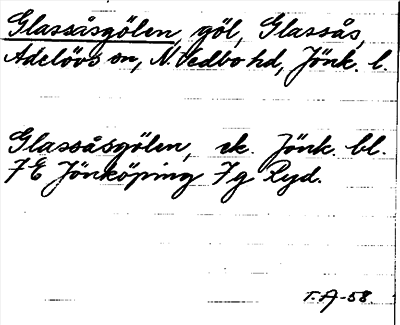 Glassåsgölen, göl, Glassås,
Adelövs sn, N. Vedbo hd, Jönk. l.
Glassåsgölen, ek. Jönk. bl.
7E Jönköping 7g Ryd.
T.A-58.